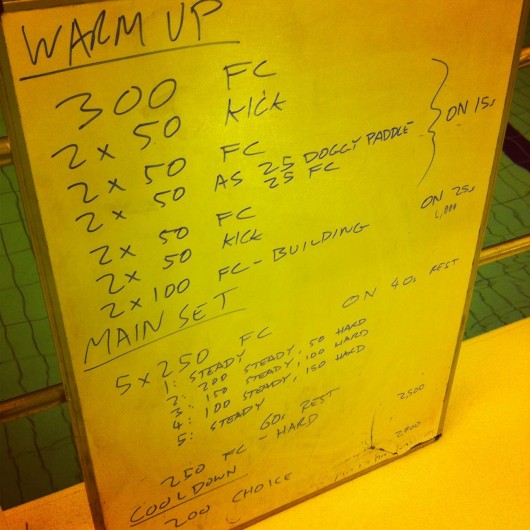 WARM UP
300 FC
2 x 50 KICK
2 x 50 FC
2 x 50 AS 25 DOGGY PADDLE
25 FC
ON 15s
2 x 50 FC
2 x 50 KICK
2 x 100 FC - BUILDING
ON 25s
1,000
MAIN SET
5 x 250 FC ON 40s REST
1: STEADY
2: 200 STEADY, 50 HARD
3: 150 STEADY, 100 HARD
4: 100 STEADY, 150 HARD
5: STEADY
60s REST
250 FC - HARD
2500
COOL DOWN
200 CHOICE